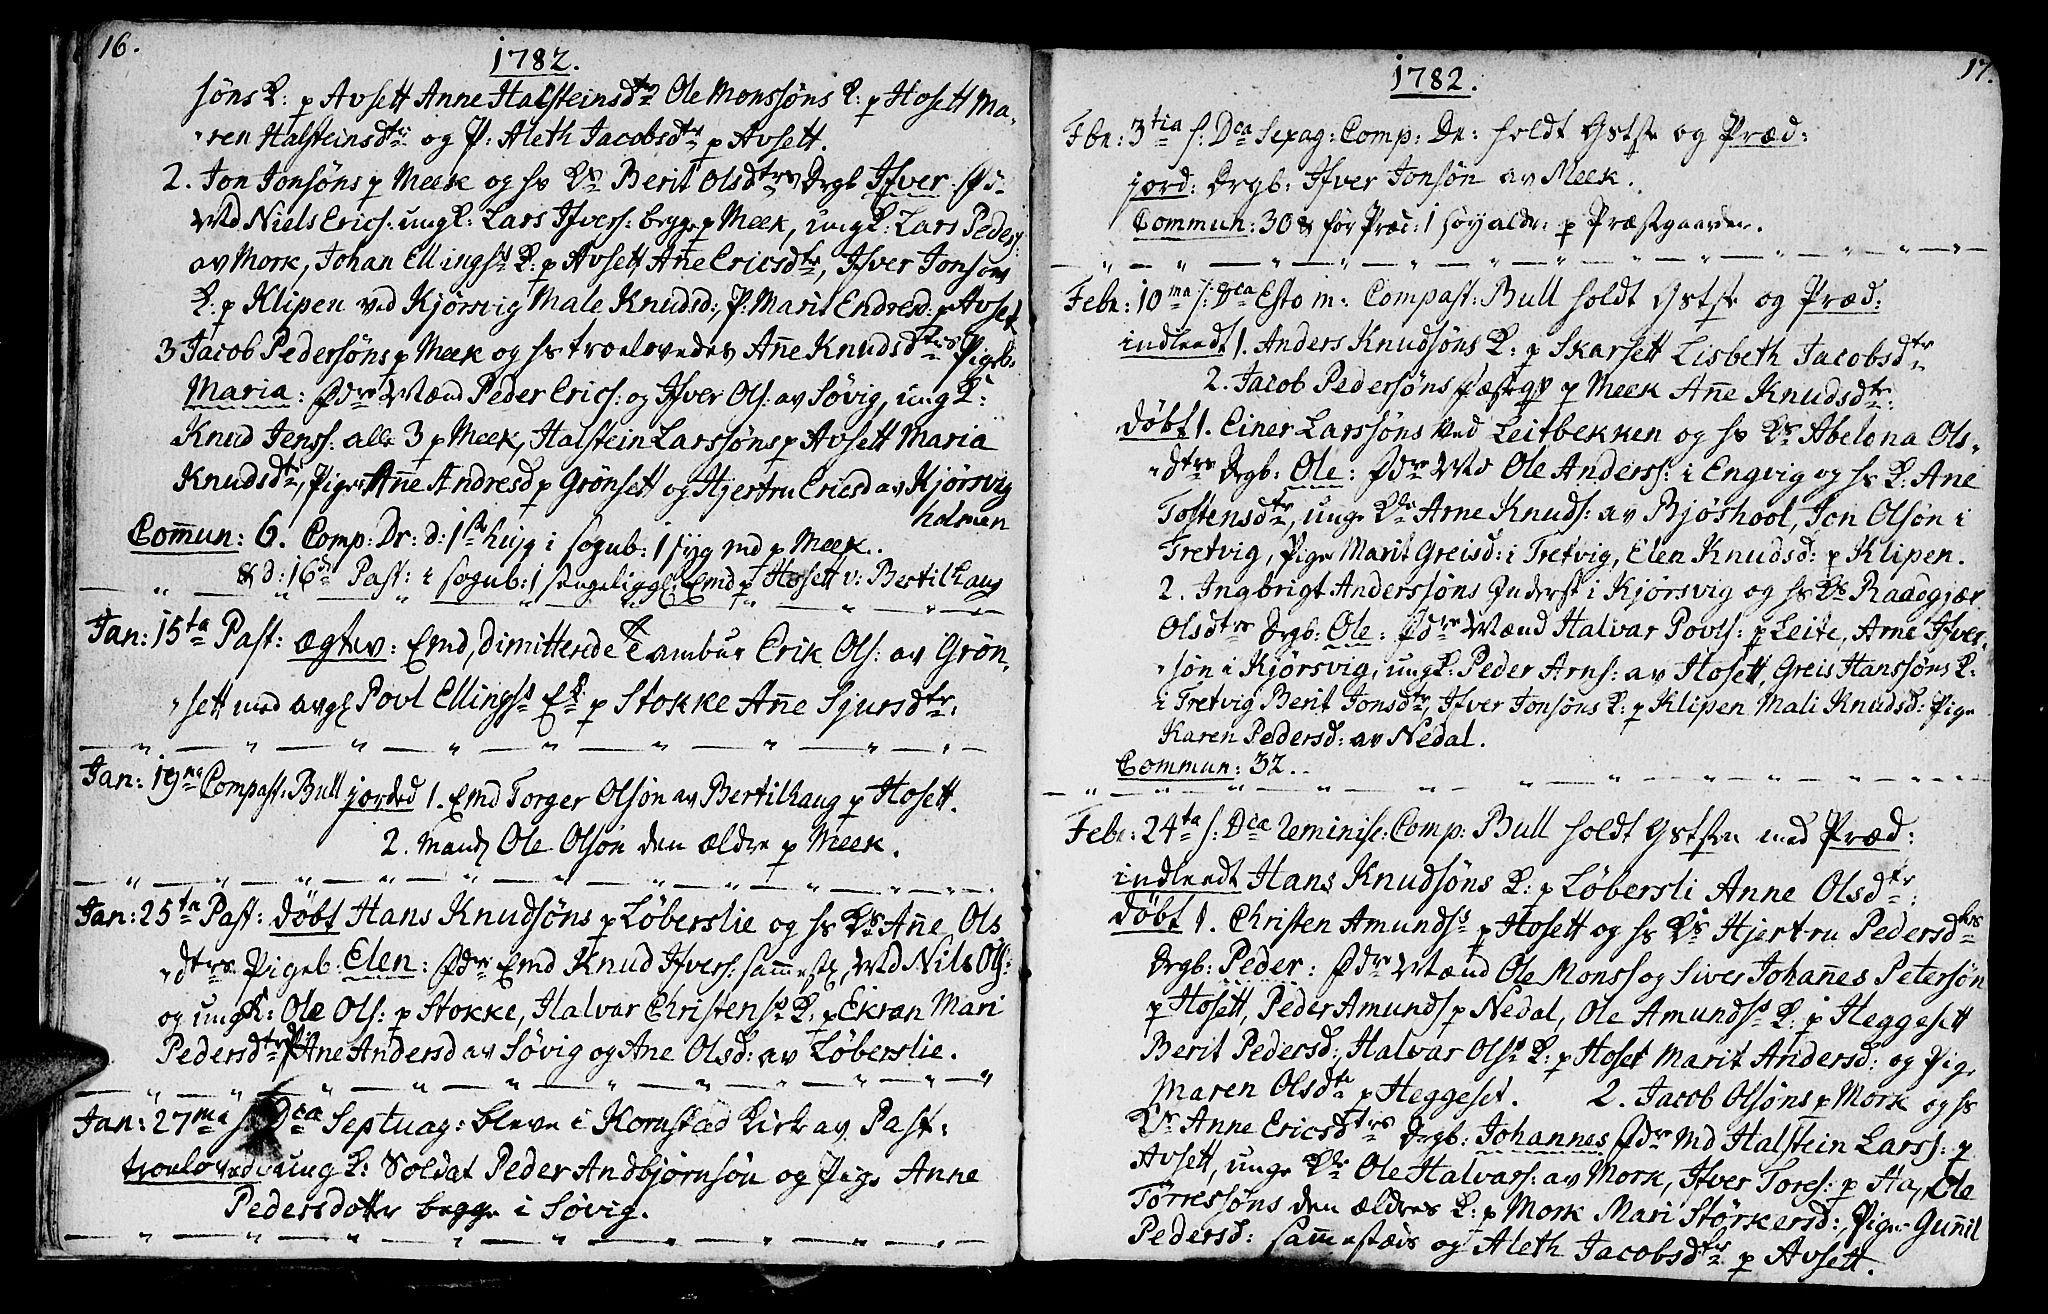 16.
1782.
söns K: p Avsett Anne Halsteinsdtr Ole Monssöns K: p Hosett Ma-
ren Halsteinsdtr og P: Aleth Jacobsdtr p Avsett.
2. Jon Jonsöns p Meek og hs Ks Berit Olsdtrs Drgb Ifver :
Md Niels Erics: ungK: Lars Ifvers: begge p Meek, ungK: Lars Peders:
av Mork, Johan Ellingss K: p Avsett Añe Ericsdtr, Ifver Jonsöns
K: p Klipen ved Kjörsvig Male Knudsd:, P: Marit Endresd: p Avset
3 Jacob Pedersöns p Meek og hs troelovedes Añe Knudsdtrs Pigeb:
Maria: Fdre Mænd Peder Erics: og Ifver Ols: av Sövig, ung K:
Knud Jenss: alle 3 p Meek, Halstein Larssöns p Avsett Maria
Knudsdtr, Piger Añe Andresd p Grönsett og Hjertru Ericsd av Kjörsvig
holmen
Com̃un: 6. Comp: Dr: d: 1ste hujg i sogub: 1 syg md p Meek.
& d: 16de Past: i sogub: 1 sengeligg: Emd p Hosett v: Bertilhaug
Jan: 15ta Past: ægtev: Emd, Dimitterede Tambur Erik Ols: av Grön-
sett med avgl Povl Ellingss EK p Stokke Añe Sjursdtr:
Jan: 19na Compast: Bull jorded 1. Emd Torger Olsön av Bertilhaug p Hosett.
2. Mand Ole Olsön den ældre p Meek.
Jan: 25ta Past: döbt Hans Knudsöns p Löberslie og hs Ks Añe Ols
dtrs Pigeb: Elen: Fdre Emd Knud Ifvers: sam̃est, Md Nils Ols:
og ungK: Ole Ols: p Stokke, Halvar Christenss K: p Ekran Mari
Pedersdtr P Ane Andersd av Sövig og Ane Olsd: av Löberslie.
Jan: 27ma s: Dca Septuag: bleve i Kornstad Kirke av Past:
troelovede ung K: Soldat Peder Andbjörnsön og Pige Anne
Pedersdotter begge i Sövig.
17.
1782.
Fbr: 3tia s: Dca Sexag: Comp: Dr: holdt Gstst og Præd:
jord: Drgb: Ifver Jonsön av Meek.
Commun: 30 & før Præd: 1 p Præstgaarden.
Febr: 10ma s: Dca Estom: Compast: Bull holdt Gstst og Præd:
indleedt 1. Anders Knudsöns K: p Skarsett Lisbeth Jacobsdtr
2. Jacob Pedersöns p Meek Añe Knudsdtr:
döbt 1. Einer Larssöns ved Leitbekken og hs Ks Abelona Ols-
dtrs Drgb: Ole: Fdre Md Ole Anderss: i Engvig og hs K: Ane
Tostensdtr, unge Kle Arne Knuds: av Bjöshool, Jon Olsön i
Tretvig, Pige Marit Greisd: i Tretvig, Elen Knudsd: p Klipen.
2. Ingbrigt Anderssöns Inderst i Kjörsvig og hs Ks Raadgjær
Olsdtrs Drgb: Ole: Fdre Mænd Halvar Povls: p Leite, Arne Ifver-
sön i Kjörsvig, ungK: Peder Arns: av Hosett, Greis Hanssöns K:
i Tretvig Berit Jonsdtr, Ifver Jonsöns K: p Klipen Mali Knudsd: Pige
Karen Pedersd: av Nedal.
Commun: 32.
Febr: 24ta s: Dca Reminisc: Comp: Bull holdt Gststen med Præd:
indleedt Hans Knudsöns K: p Löbersli Anne Olsdtr:
döbt 1. Christen Amundss p Hosett og hs Ks Hjertru Pedersdtrs
Drgb: Peder: Fdre Mænd Ole Monss og Siver Johañes Petersön
p Hosett, Peder Amunds p Nedal, Ole Amundss K: p Heggesett
Berit Pedersd:, Halvar Olss K: p Hoset Marit Andersd: og Pige
Maren Olsdtr p Heggeset. 2. Jacob Olsöns p Mork og hs
Ks Anne Ericsdtrs Drgb: Johannes Fdre Md Halstein Larss: p
Avsett, unge Kle Ole Halvars: av Mork, Ifver Tores: p Ha, Ole
Törressöns den ældres K: p Mork Mari Störkersd:, Piger Gun̄il
Pedersd: sam̃estæds og Aleth Jacobsdtr p Avsett.